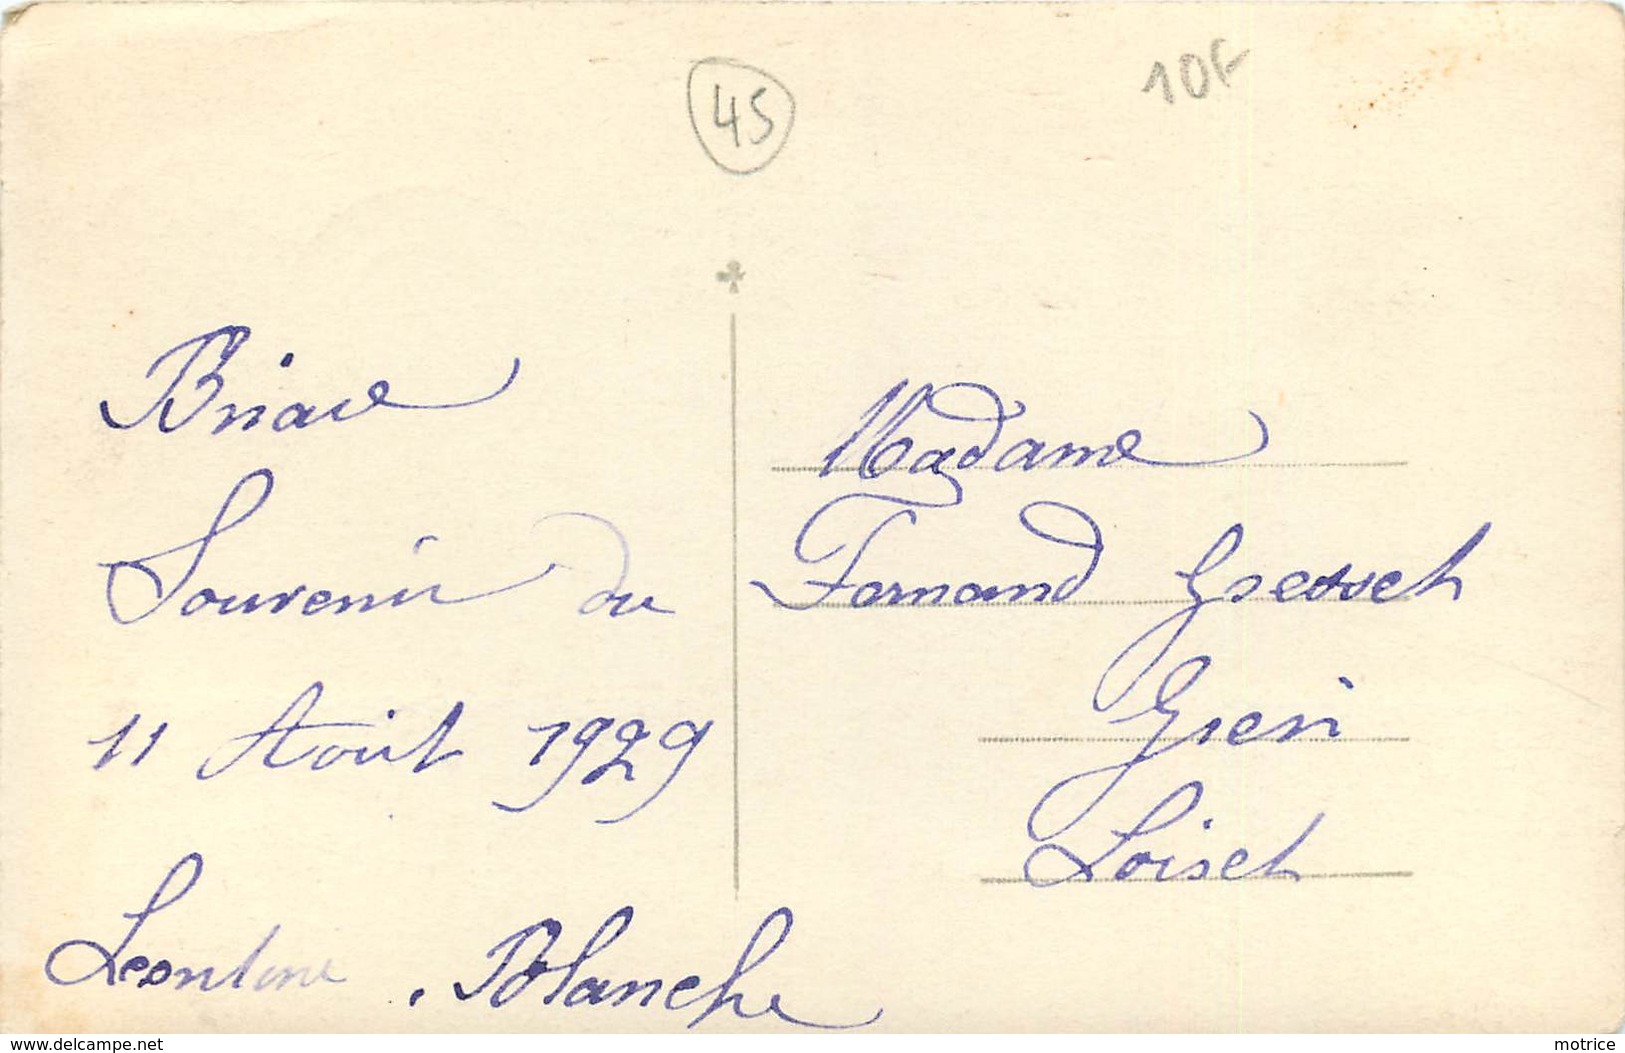 45
10F
Briare
Souvenir du
11 Août 1929
Leontine . Blanche
Madame
Fernand
Loiret
www.delcampe.net
motrice